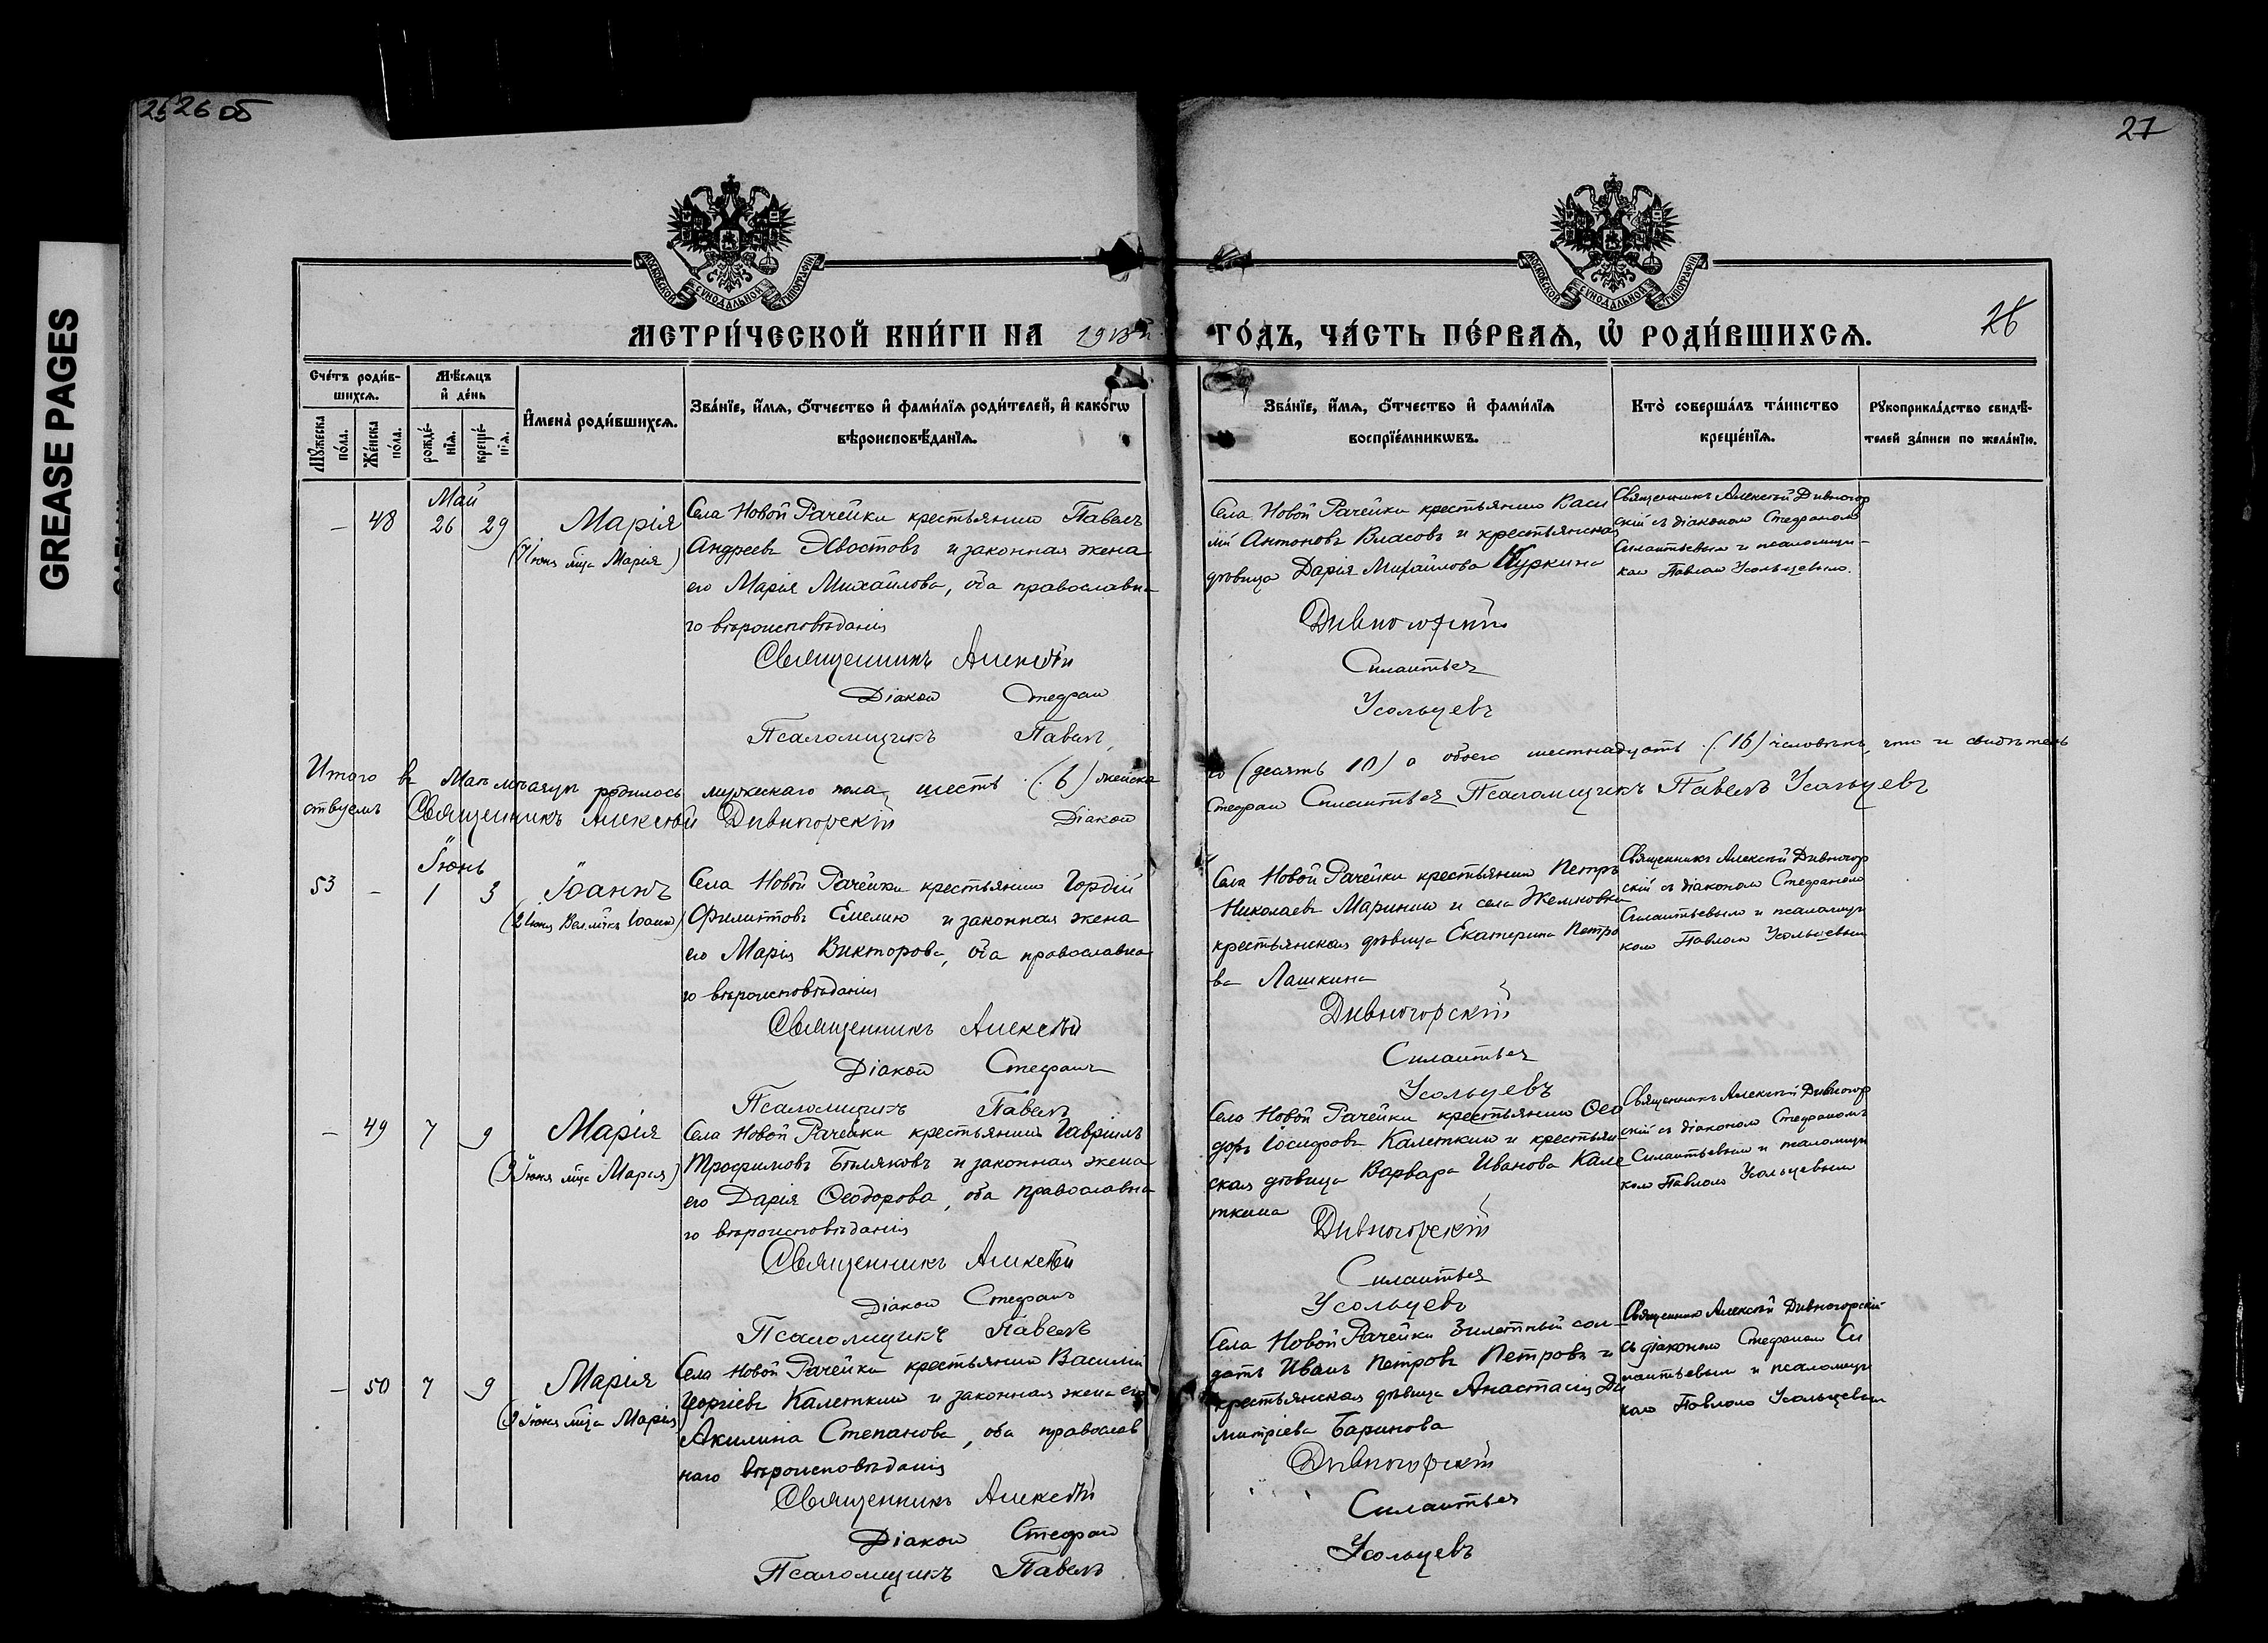 GREASE PAGES
26 об
27
МОСКОВСКОЙ СѴНОДАЛЬНОЙ ТИПОГРАФІИ
МОСКОВСКОЙ СѴНОДАЛЬНОЙ ТИПОГРАФІИ
МЕТРИ́ЧЕСКОЙ КНИ́ГИ НА 1913й ГО́ДЪ, ЧА́СТЬ ПЕ́РВАѦ, Ѡ҆ РОДИ́ВШИХСѦ.
Сче́тъ роди́в-
шихсѧ.
Мꙋ́жеска по́ла.
Же́нска по́ла.
Мѣ́сѧцъ
и҆ де́нь
рожде́-
нїѧ.
креще́-
нїѧ.
И҆мена̀ роди́вшихсѧ.
Зва́нїе, и҆́мѧ, ѻ҆́тчество и҆ фами́лїѧ роди́телей, и҆ како́гѡ
вѣроисповѣ́данїѧ.
Зва́нїе, и҆́мѧ, ѻ҆́тчество и҆ фами́лїѧ
воспрїе́мникѡвъ.
Кто̀ соверша́лъ та́инство
креще́нїѧ.
Рꙋкоприкла́дство свидѣ́-
телей за́писи по жела́нїю.
Май
– 48 26 29 Марія
(7 Іюня мца Марія)
Села Новой Рачейки крестьянинъ Павелъ
Андреевъ Хвостовъ и законная жена
его Марія Михайлова, оба православна
го вѣроисповѣданія
Священникъ Алексѣй
Діаконъ Стефанъ
Псаломщикъ Павелъ
Села Новой Рачейки крестьянинъ Васи
лій Антоновъ Власовъ и крестьянская
дѣвица Дарія Михайлова Куркина
Дивногорскій
Силантьев
Усольцевъ
Священникъ Алексѣй Дивногор
скій съ діакономъ Стефаномъ
Силантьевымъ и псаломщи-
комъ Павломъ Усольцевымъ.
Итого въ Маѣ мѣсяцѣ родилось мужескаго пола шесть (6) женска
го (десять 10) а обоего шестнадцать (16) человѣкъ, что и свидѣтель
ствуемъ Священникъ Алексѣй Дивногорскій Діаконъ
Стефанъ Силантьев Псаломщикъ Павелъ Усольцевъ
Іюнь
53 – 1 3 Іоаннъ
(2 Іюня Вел. мчкъ Іоаннъ)
Села Новой Рачейки крестьянинъ Гордій
Филипповъ Емелинъ и законная жена
его Марія Викторова, оба православна
го вѣроисповѣданія
Священникъ Алексѣй
Діаконъ Стефанъ
Псаломщикъ Павелъ
Села Новой Рачейки крестьянинъ Петръ
Николаевъ Маринин и села Жемковки
крестьянская дѣвица Екатерина Петро
ва Лашкина
Дивногорскій
Силантьев
Усольцевъ
Священникъ Алексѣй Дивногор
скій съ діакономъ Стефаномъ
Силантьевымъ и псаломщи
комъ Павломъ Усольцевым
– 49 7 9 Марія
(9 Іюня мца Марія)
Села Новой Рачейки крестьянинъ Гавріилъ
Трофимовъ Бѣляковъ и законная жена
его Дарія Ѳеодорова, оба православна
го вѣроисповѣданія
Священникъ Алексѣй
Діаконъ Стефанъ
Псаломщикъ Павелъ
Села Новой Рачейки крестьянинъ Ѳео
доръ Іосифовъ Калеткин и крестьян
ская дѣвица Варвара Иванова Кале
ткина
Дивногорскій
Силантьев
Усольцевъ
Священникъ Алексѣй Дивногор
скій съ діакономъ Стефаномъ
Силантьевымъ и псаломщи
комъ Павломъ Усольцевым
– 50 7 9 Марія
(9 Іюня мца Марія)
Села Новой Рачейки крестьянинъ Василій
Георгіевъ Калеткин и законная жена его
Акилина Степанова, оба православ
наго вѣроисповѣданія
Священникъ Алексѣй
Діаконъ Стефанъ
Псаломщикъ Павелъ
Села Новой Рачейки билетный сол-
датъ Иванъ Петровъ Петровъ и
крестьянская дѣвица Анастасія Ди
митріева Баринова
Дивногорскій
Силантьев
Усольцевъ
Священникъ Алексѣй Дивногорскій
съ діакономъ Стефаном Си
лантьевым и псаломщи
комъ Павломъ Усольцевым